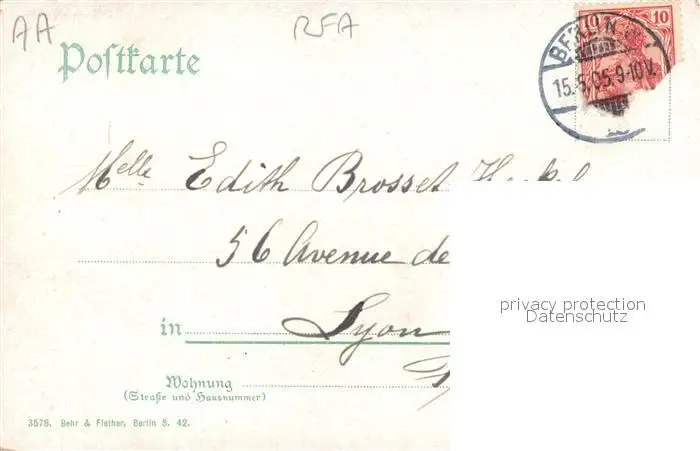 AA
RFA
Postkarte
10 10
BERLIN
15.5.05.9-10V.
Melle Edith Brosset
56 Avenue de
privacy protection
Datenschutz
in Lyon
Wohnung
(Straße und Hausnummer)
3578. Behr & Flether, Berlin S. 42.